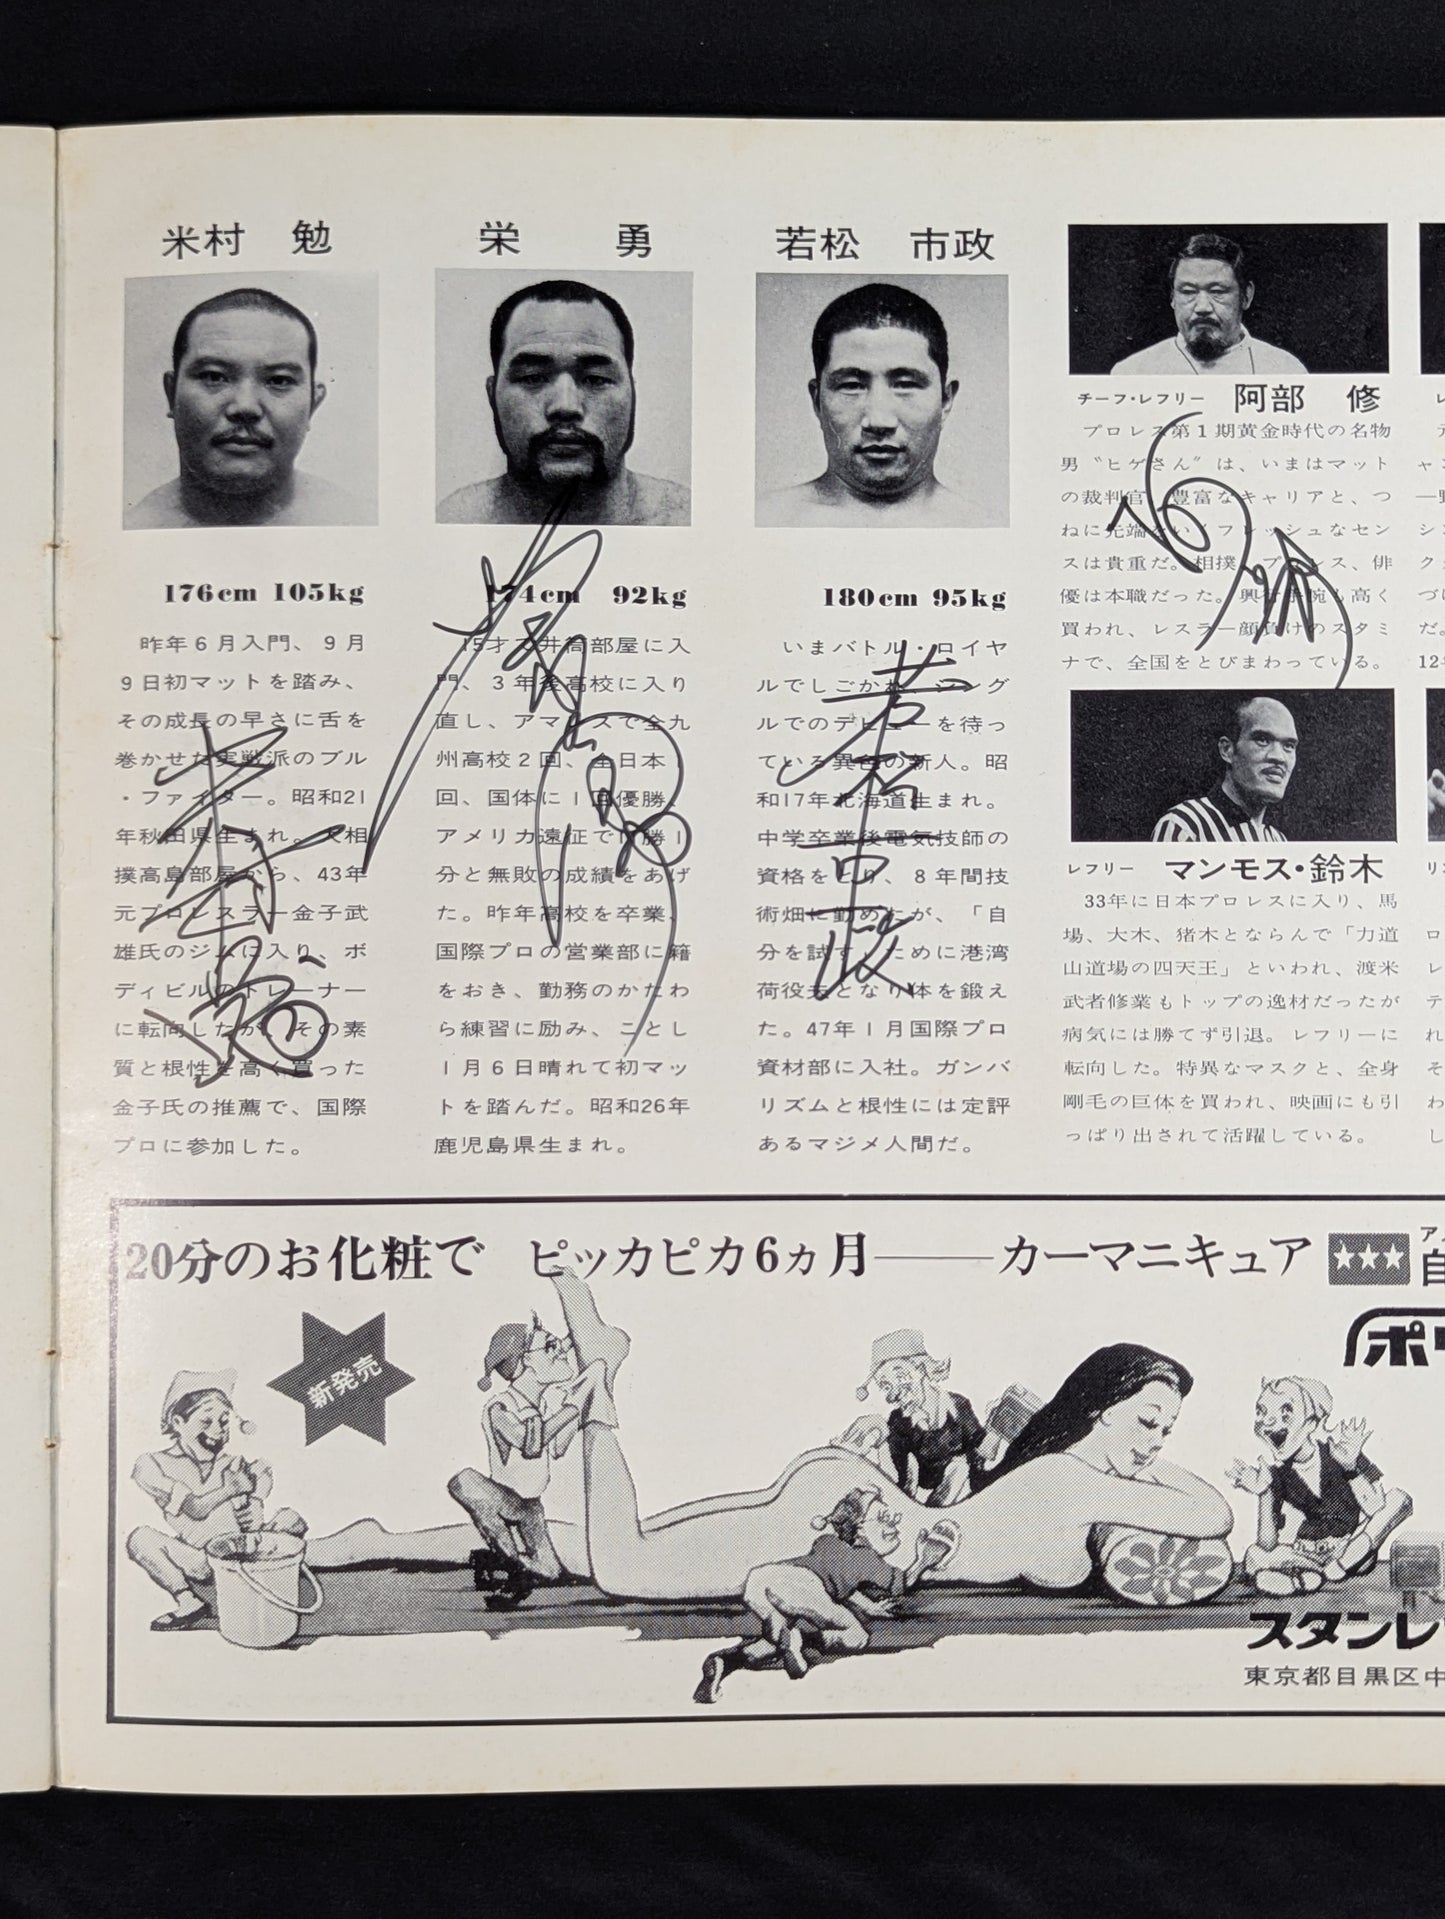 米村 勉
176cm 105kg
昨年6月入門、9月
9日初マットを踏み、
その成長の早さに舌を
巻かせた実戦派のブル
・ファイター。昭和21
年秋田県生まれ。大相
撲高島部屋から、43年
元プロレスラー金子武
雄氏のジムに入り、ボ
ディビルのトレーナー
に転向したが、その素
質と根性を高く買った
金子氏の推薦で、国際
プロに参加した。
栄 勇
174cm 92kg
15才で井筒部屋に入
門、3年後高校に入り
直し、アマレスで全九
州高校2回、全日本1
回、国体に1回優勝、
アメリカ遠征で11勝1
分と無敗の成績をあげ
た。昨年高校を卒業、
国際プロの営業部に籍
をおき、勤務のかたわ
ら練習に励み、ことし
1月6日晴れて初マッ
トを踏んだ。昭和26年
鹿児島県生まれ。
若松 市政
180cm 95kg
いまバトル・ロイヤ
ルでしごかれ、シング
ルでのデビューを待っ
ている異色の新人。昭
和17年北海道生まれ。
中学卒業後電気技師の
資格をとり、8年間技
術畑に勤めたが、「自
分を試す」ために港湾
荷役夫となり体を鍛え
た。47年1月国際プロ
資材部に入社。ガンバ
リズムと根性には定評
あるマジメ人間だ。
若松市政
チーフ・レフリー 阿部 修
プロレス第1期黄金時代の名物
男〝ヒゲさん〟は、いまはマット
の裁判官。豊富なキャリアと、つ
ねに先端をいくフレッシュなセン
スは貴重だ。相撲、プロレス、俳
優は本職だった。興行手腕も高く
買われ、レスラー顔負けのスタミ
ナで、全国をとびまわっている。
レフリー マンモス・鈴木
33年に日本プロレスに入り、馬
場、大木、猪木とならんで「力道
山道場の四天王」といわれ、渡米
武者修業もトップの逸材だったが
病気には勝てず引退。レフリーに
転向した。特異なマスクと、全身
剛毛の巨体を買われ、映画にも引
っぱり出されて活躍している。
20分のお化粧で ピッカピカ6ヵ月――カーマニキュア
新発売
スタンレ
東京都目黒区中